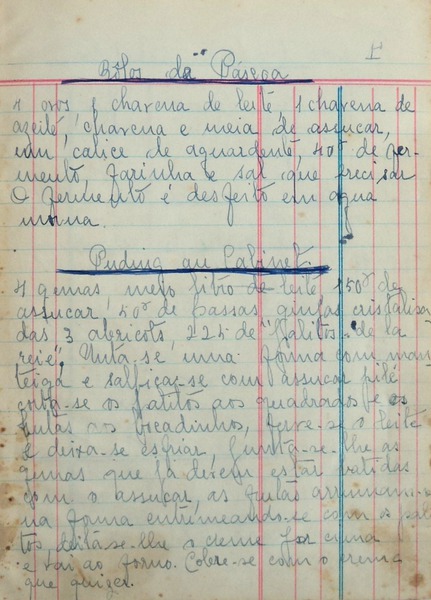 1
Bôlos da Páscoa
4 ovos, 1 chavena de leite, 1 chavena de
azeite, chavena e meia de assucar,
um calice de aguardente, 40gr de fer-
mento, farinha e sal que precisar
O fermento é desfeito em agua
morna.
Puding au Cabinet.
4 gemas meio litro de leite 150gr de
assucar, 50gr de passas, ginjas cristalisa
das 3 abricots, 225 de "palitos de la
reine". Unta-se uma forma com man
teiga e salpica-se com assucar pilé
corta-se os palitos aos quadrados e as
frutas aos bocadinhos, ferve-se o leite
e deixa-se esfriar, junta-se-lhe as
gemas que já devem estar batidas
com o assucar, as frutas arrumam-se
na forma entremeando-se com os pali
tos, deita-se-lhe o creme por cima
e vai ao forno. Cobre-se com o creme
que quizer.